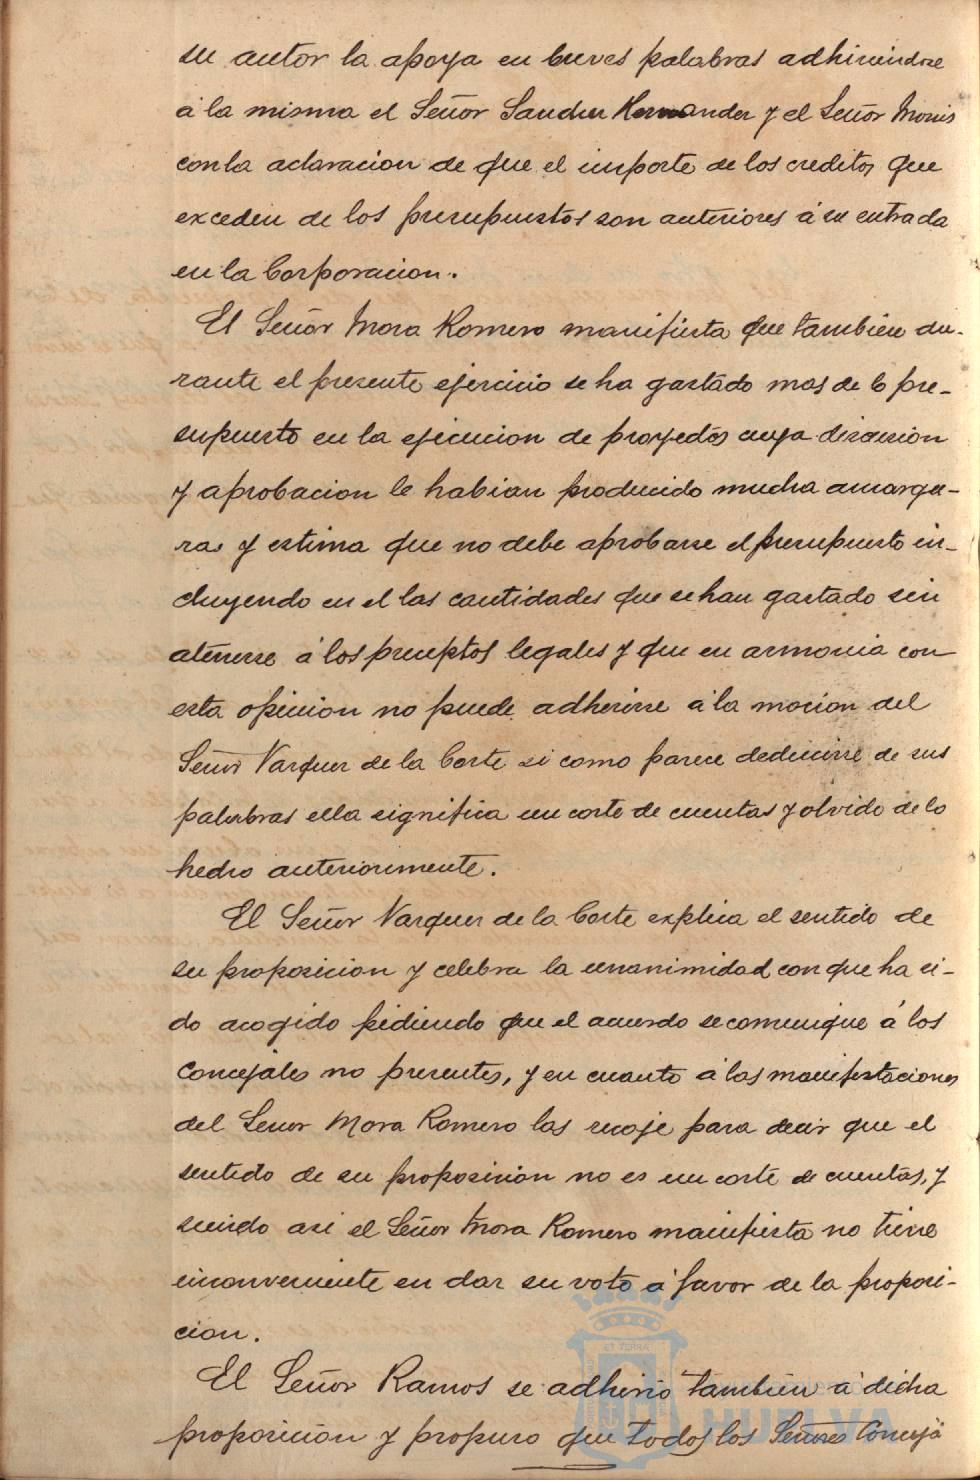 su autor la apoya en breves palabras adhiriendose
á la misma el Señor Sanchez Hernandez y el Señor Monis
con la aclaracion de que el importe de los creditos que
exceden de los presupuestos son anteriores á su entrada
en la Corporacion.
El Señor Mora Romero manifiesta que tambien du-
rante el presente ejercicio se ha gastado mas de lo pre-
supuesto en la ejecucion de proyectos cuya discusion
y aprobacion le habian producido mucha amargu-
ras y estima que no debe aprobarse el presupuesto in-
cluyendo en el las cantidades que se han gastado sin
atenerse á los preceptos legales y que en armonia con
esta opinion no puede adherirse á la mocion del
Señor Vazquez de la Corte si como parece deducirse de sus
palabras ella significa un corte de cuentas y olvido de lo
hecho anteriormente.
El Señor Vazquez de la Corte explica el sentido de
su proposicion y celebra la unanimidad con que ha si-
do acogido pidiendo que el acuerdo se comunique á los
Concejales no presentes, y en cuanto á las manifestaciones
del Señor Mora Romero las recoje para decir que el
sentido de su proposicion no es un corte de cuentas, y
siendo asi el Señor Mora Romero manifiesta no tiene
inconveniente en dar su voto á favor de la proposi-
cion.
El Señor Ramos se adhirió tambien á dicha
proposición y propuso que todos los Señores Conceja
ET TERRA
HUELVA